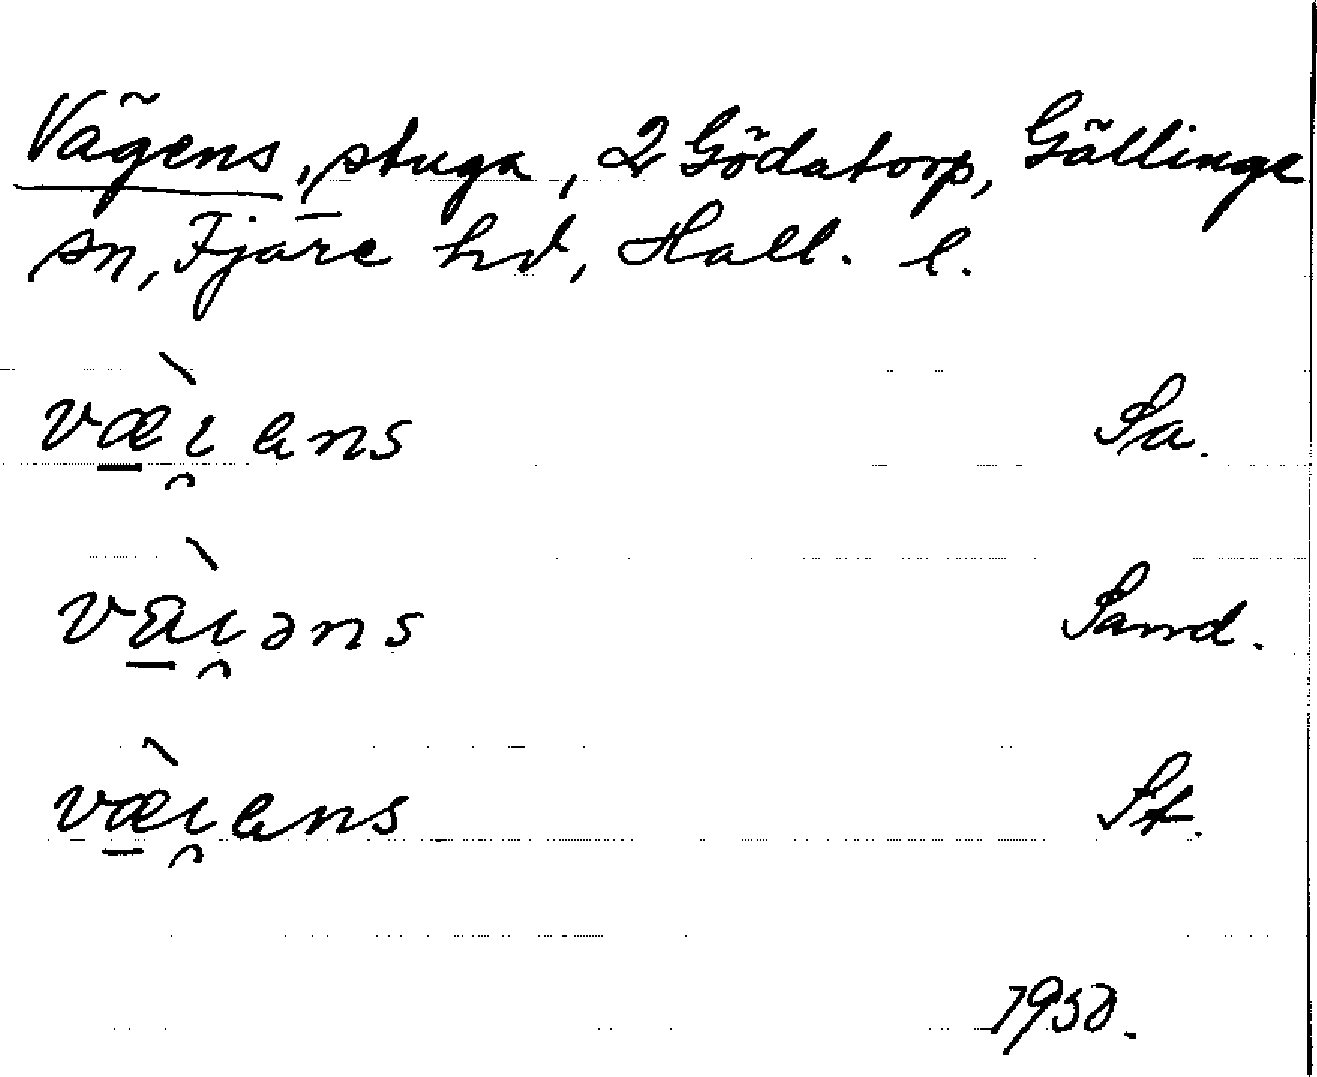 Vägens, stuga, 2 Gödatorp, Gällinge
sn, Fjäre hd, Hall. l.
væ̀ı̯ens Sa.
vàı̯əns Sand.
væ̀ı̯ens St.
1950.